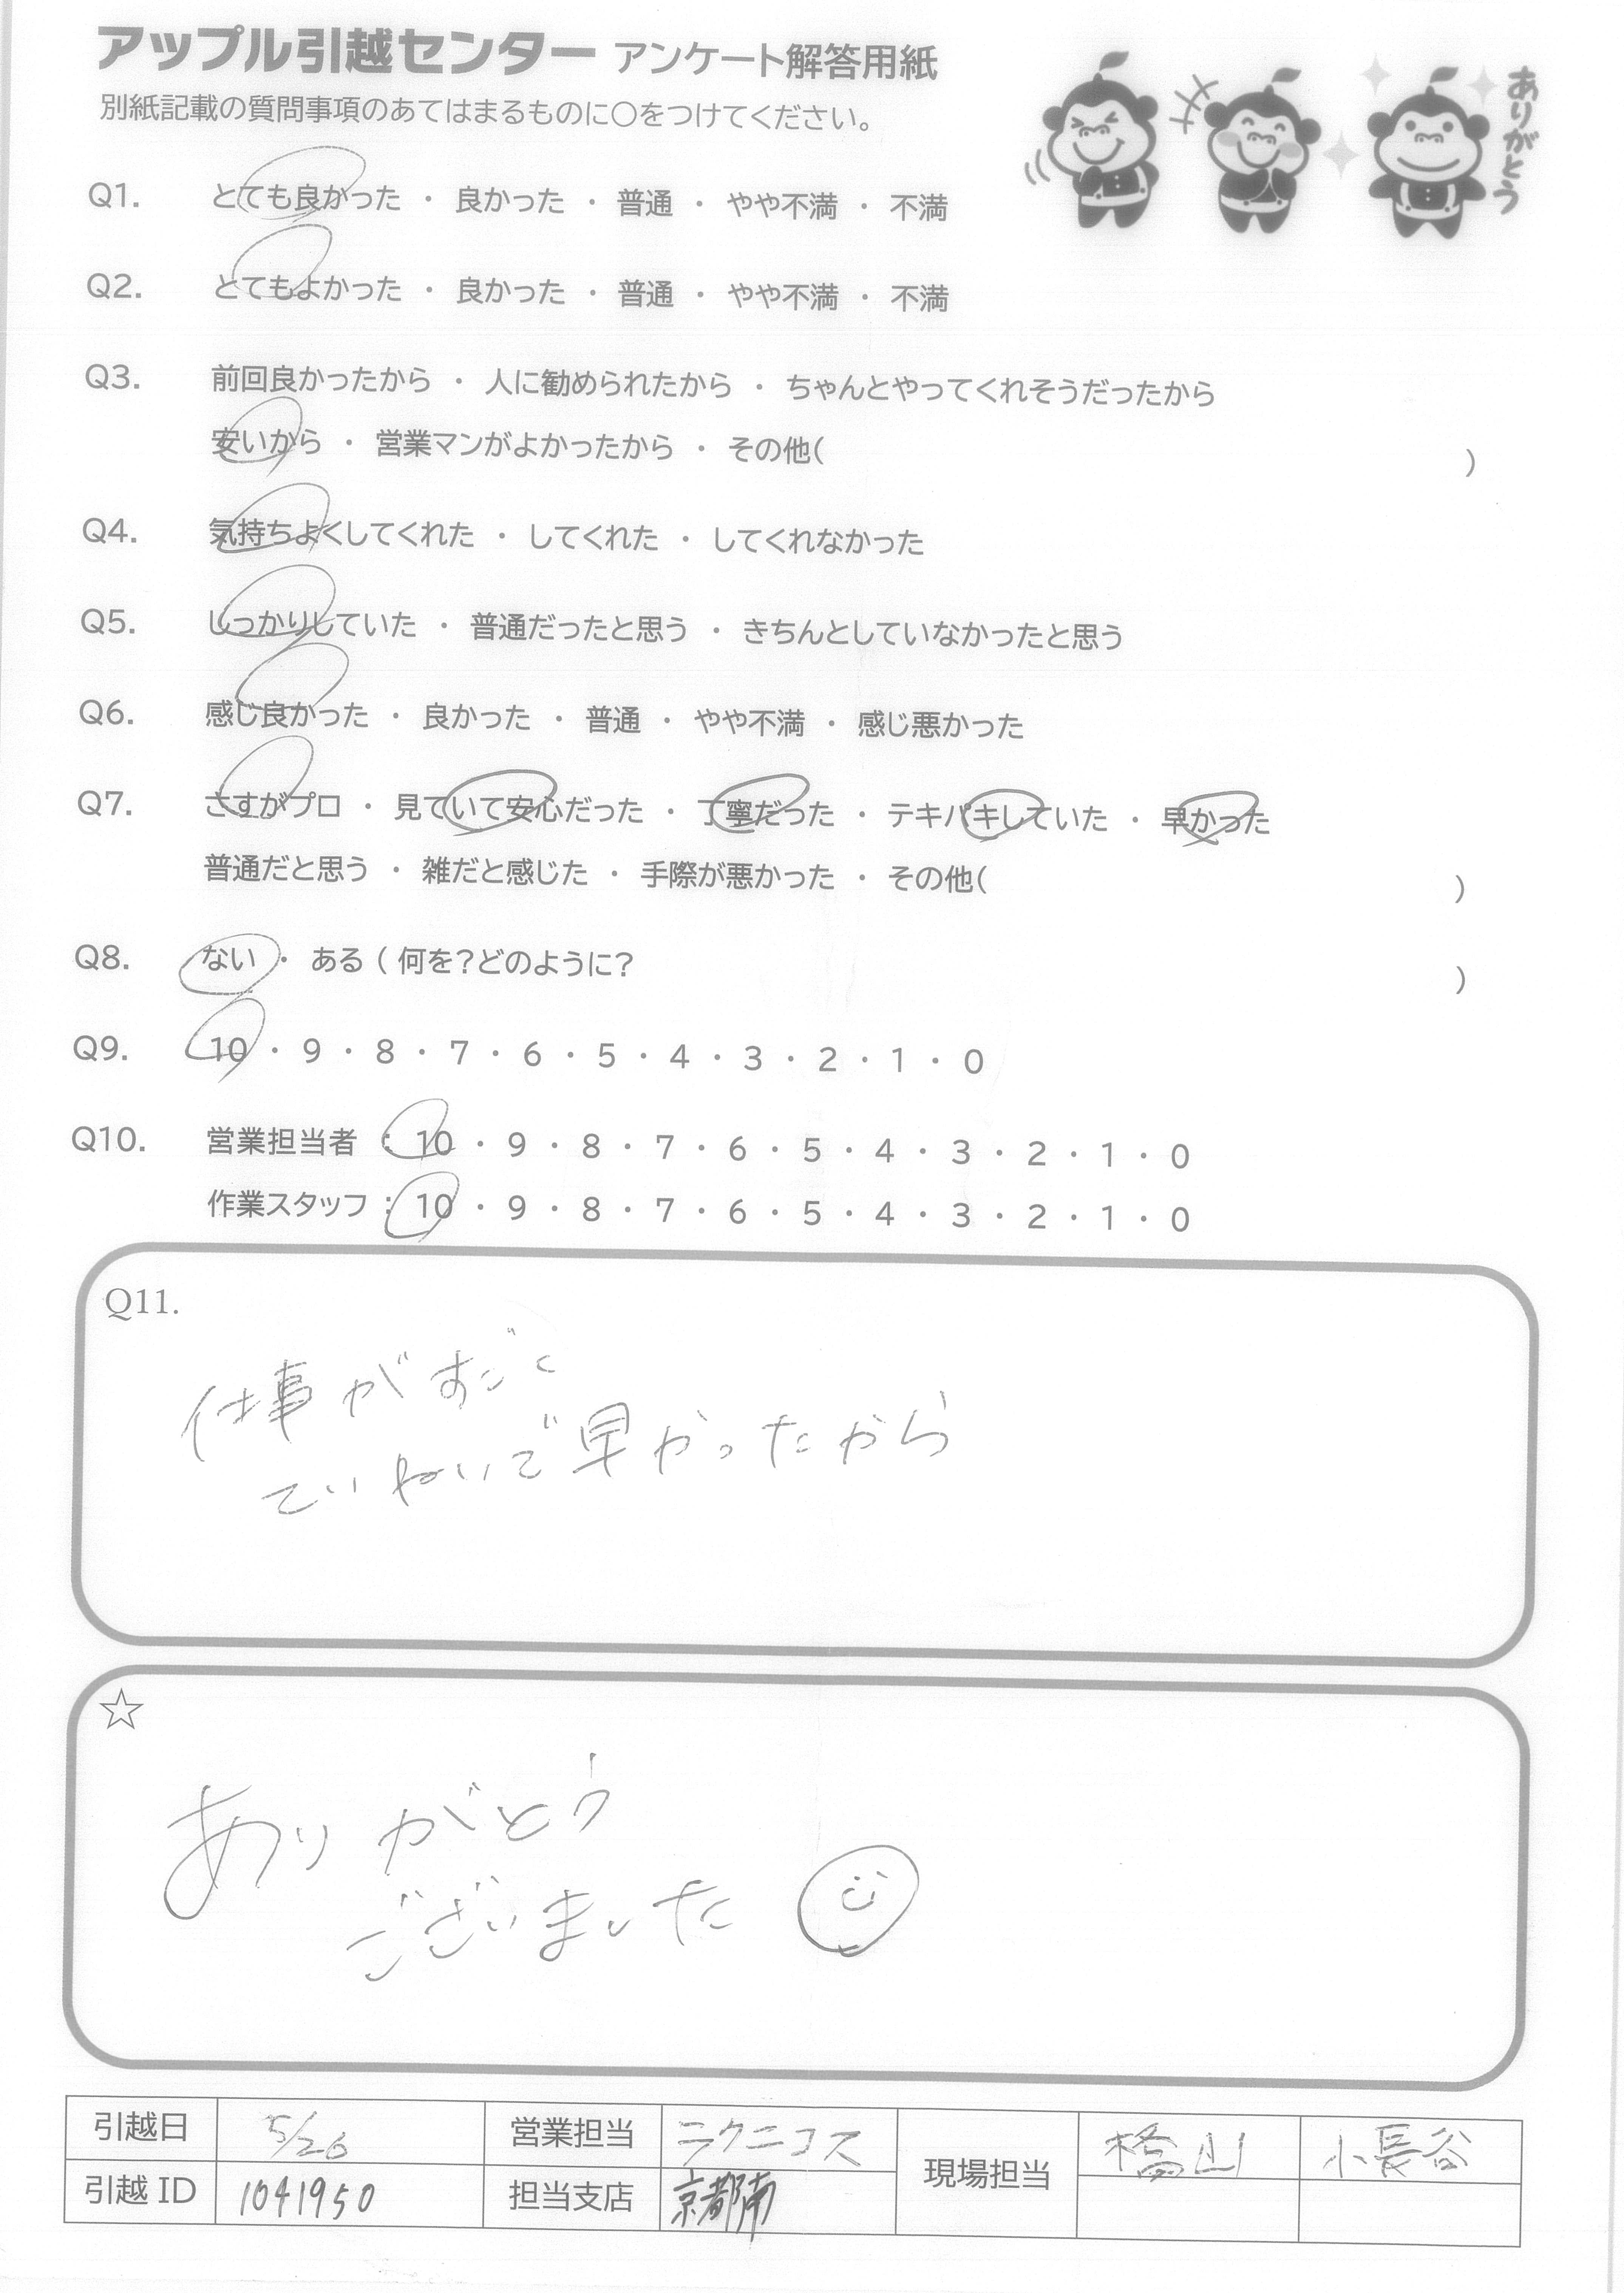 アップル引越センター アンケート解答用紙
別紙記載の質問事項のあてはまるものに○をつけてください。
ありがとう
Q1. とても良かった ・ 良かった ・ 普通 ・ やや不満 ・ 不満
Q2. とてもよかった ・ 良かった ・ 普通 ・ やや不満 ・ 不満
Q3. 前回良かったから ・ 人に勧められたから ・ ちゃんとやってくれそうだったから
安いから ・ 営業マンがよかったから ・ その他( )
Q4. 気持ちよくしてくれた ・ してくれた ・ してくれなかった
Q5. しっかりしていた ・ 普通だったと思う ・ きちんとしていなかったと思う
Q6. 感じ良かった ・ 良かった ・ 普通 ・ やや不満 ・ 感じ悪かった
Q7. さすがプロ ・ 見ていて安心だった ・ 丁寧だった ・ テキパキしていた ・ 早かった
普通だと思う ・ 雑だと感じた ・ 手際が悪かった ・ その他( )
Q8. ない ・ ある ( 何を?どのように? )
Q9. 10 ・ 9 ・ 8 ・ 7 ・ 6 ・ 5 ・ 4 ・ 3 ・ 2 ・ 1 ・ 0
Q10. 営業担当者 : 10 ・ 9 ・ 8 ・ 7 ・ 6 ・ 5 ・ 4 ・ 3 ・ 2 ・ 1 ・ 0
作業スタッフ : 10 ・ 9 ・ 8 ・ 7 ・ 6 ・ 5 ・ 4 ・ 3 ・ 2 ・ 1 ・ 0
Q11.
仕事がすごく
ていねいで早かったから
☆
ありがとう
ございました
引越日 5/26 営業担当 ラクニコス 現場担当 橋山 小長谷
引越 ID 1041950 担当支店 京都南